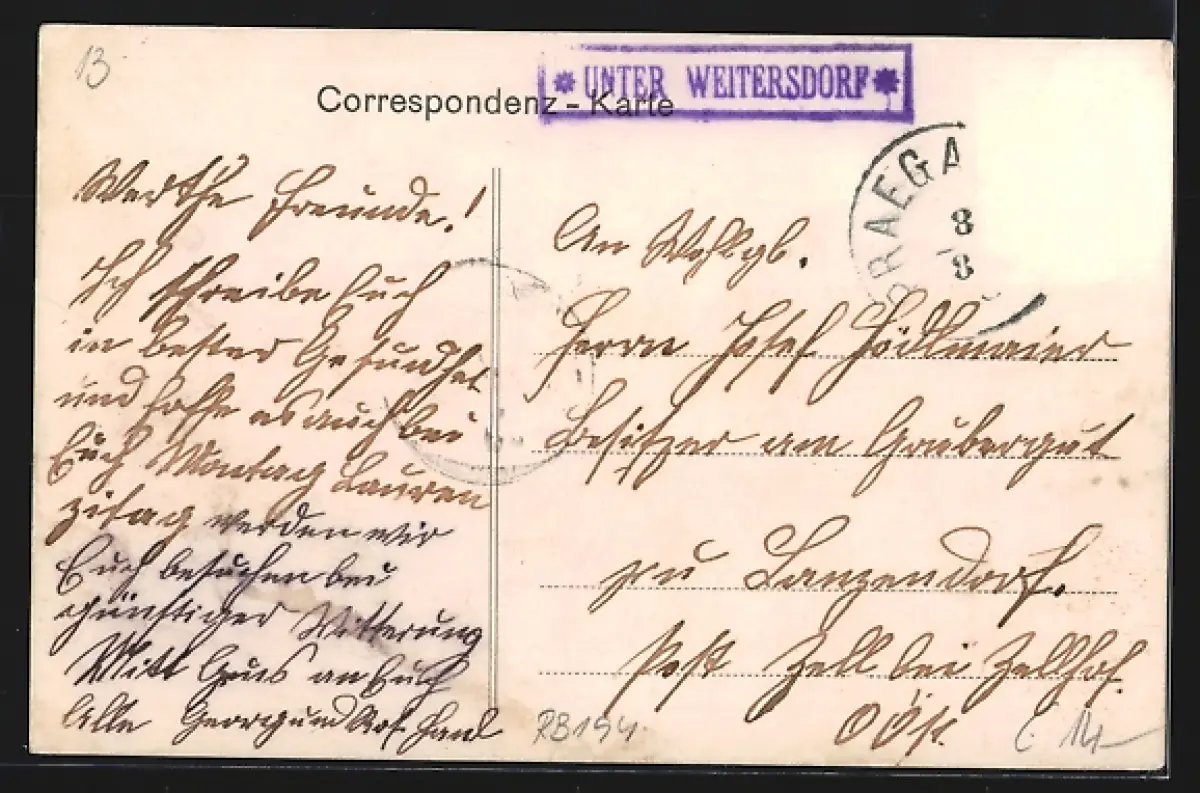 13
Correspondenz - Karte
* UNTER WEITERSDORF *
PRAEGA
8
8
Werthe Freunde!
Ich schreibe Euch
in bester Gesundhet
und hoffe es auch bei
Euch Montag Lauren
zitag werden wir
Euch besuchen bei
günstiger Witterung
Mitt Grus an Euch
Alle Georg und
An Wohlgb.
Herrn Josef Hödlmaier
Besitzer am Grubergut
zu Lanzendorf.
Post Zell bei Zellhof.
OÖst.
RB194.
14